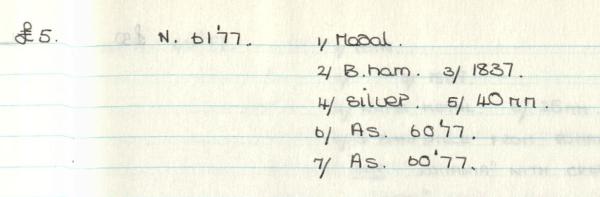 £5. N. 61'77. 1/ Medal.
2/ B.ham. 3/ 1837.
4/ silver. 5/ 40mm.
6/ As. 60'77.
7/ As. 60'77.